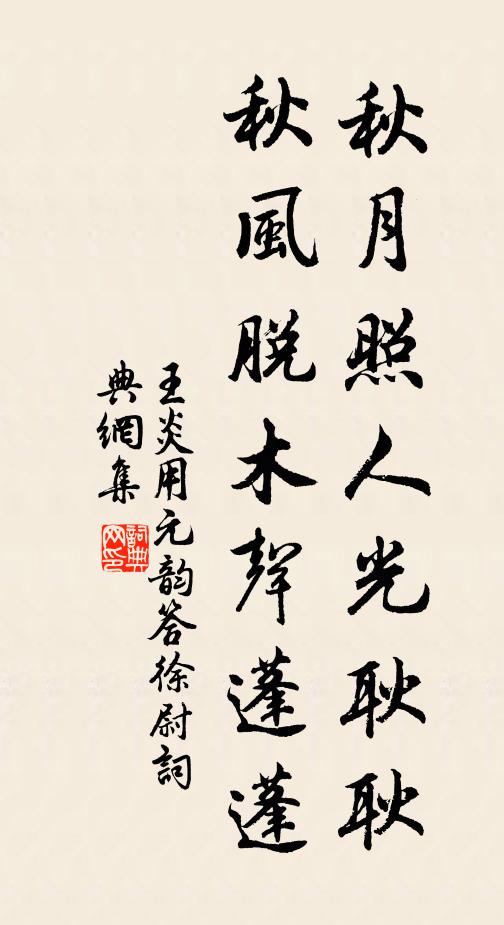 秋月照人光耿耿
秋風脱木聲蓬蓬
王炎用元韵答徐尉詞
典網集
詞典網印